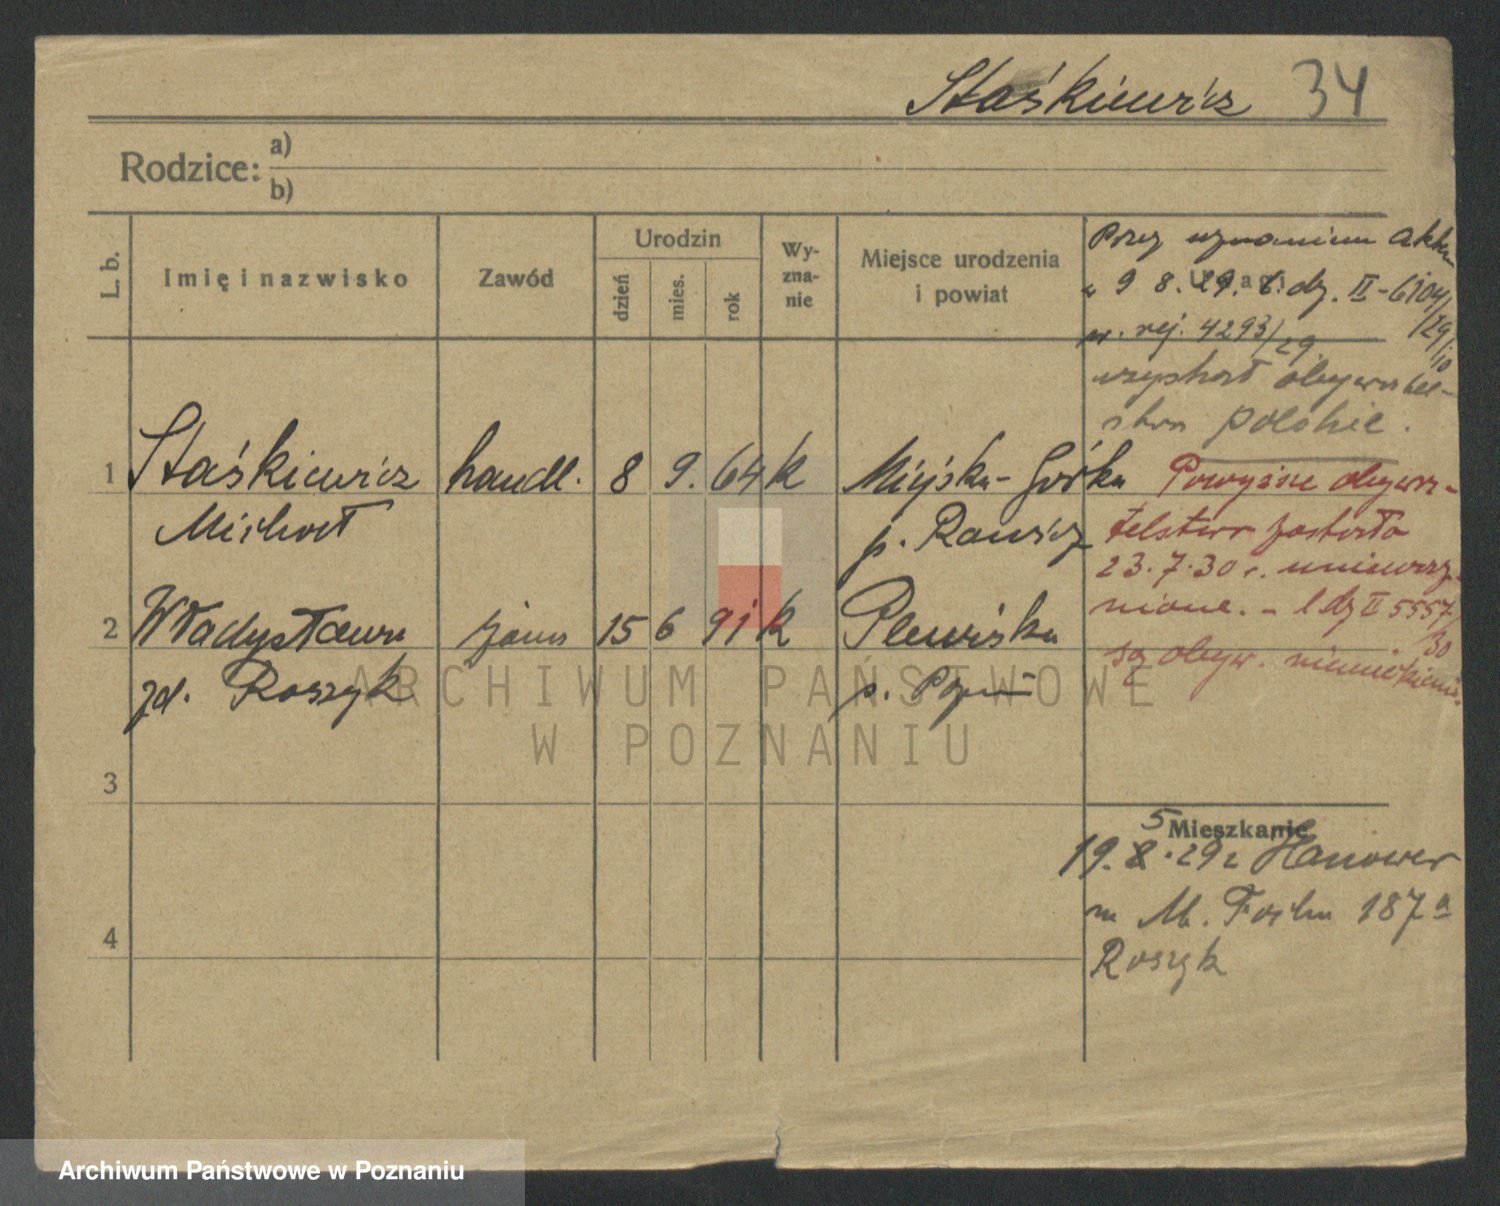 Staśkiewicz 34
Rodzice: a)
b)
L. b.
Imię i nazwisko
Zawód
Urodzin
dzień
mies.
rok
Wy-
zna-
nie
Miejsce urodzenia
i powiat
Przez uznanie
9 8. 29. l. dz. II-6104/29
w. rej. 4293/29
uzyskał obywatel-
stwo polskie.
1 Staśkiewicz handl. 8 9. 64 K Miejska-Górka
Michał p. Rawicz
Powyższe obywa-
telstwo zostało
23.7.30 r. unieważ-
nione. - l dz II 5557/30
są obyw. niemieckimi.
2 Władysława żona 15 6 91 K Plewiska
zd. Roszyk p. Pozn
3
4
Mieszkanie
19. 5 8. 29 z Hanower
m M. Focha 187a
Roszyk
ARCHIWUM PAŃSTWOWE
W POZNANIU
Archiwum Państwowe w Poznaniu